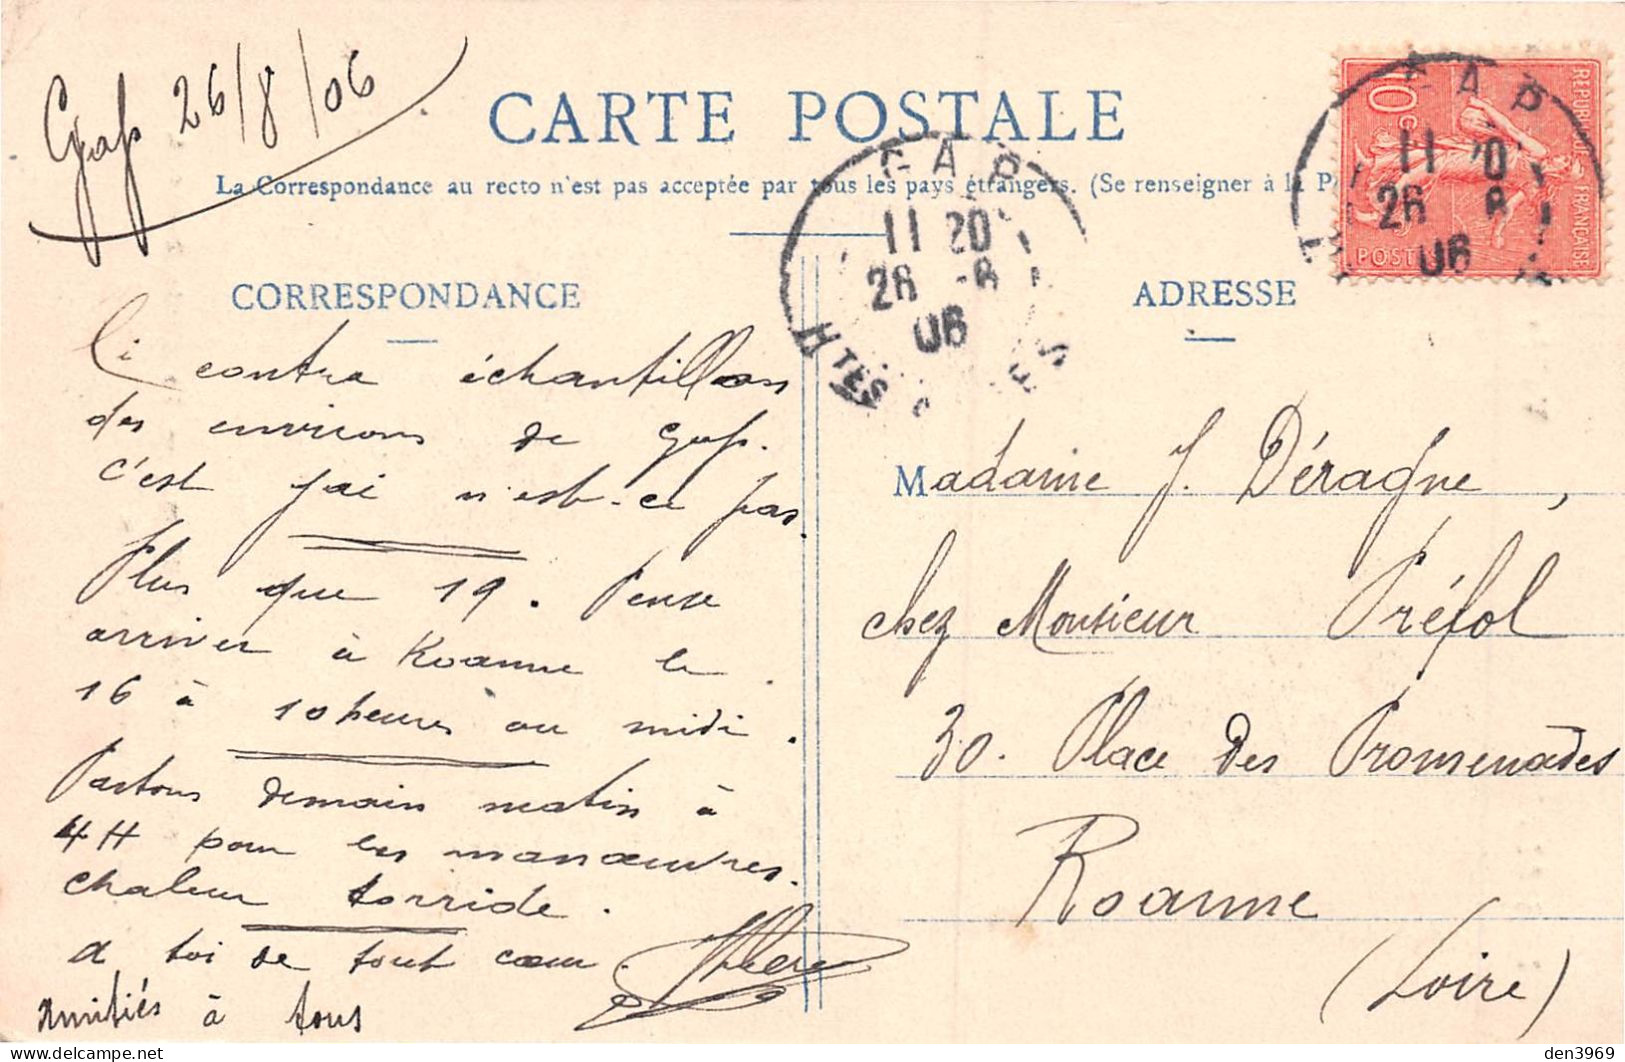 Gap 26/8/06
CARTE POSTALE
La Correspondance au recto n'est pas acceptée par tous les pays étrangers. (Se renseigner à la P
RÉPUBLIQUE FRANÇAISE
10 c
POSTES
GAP
11 20
26 -8
06
HTES
GAP
11 20
26 8
06
CORRESPONDANCE
ADRESSE
Ci contre échantillon
des environs de Gap.
C'est gai n'est-ce pas.
Plus que 19. Pense
arriver à Roanne le
16 à 10 heures ou midi.
Partons demain matin à
4H pour les manœuvres.
Chaleur torride.
A toi de tout cœur.
Amitiés à tous
Madame J. Déragne,
chez Monsieur Préfol
30. Place des Promenades
Roanne
(Loire)
den3969